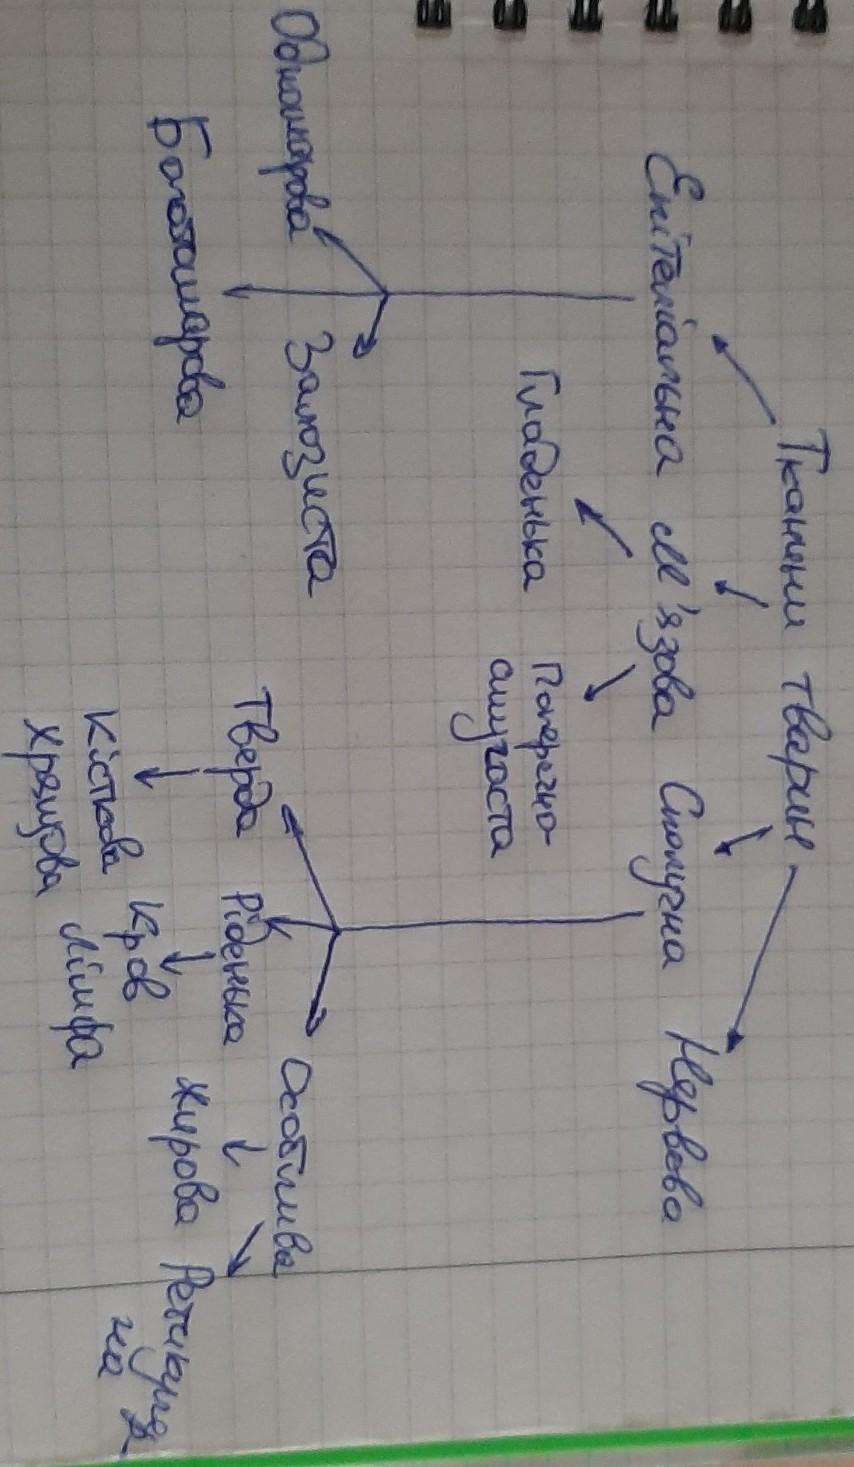 Тканини тварин
Епітеліальна М'язова Сполучна Нервова
Гладенька Поперечно-
смугаста
Одношарова Залозиста
Багатошарова
Тверда Ріденька Особлива
Кісткова Кров Жирова Ретикуляр
Хрящова Лімфа на